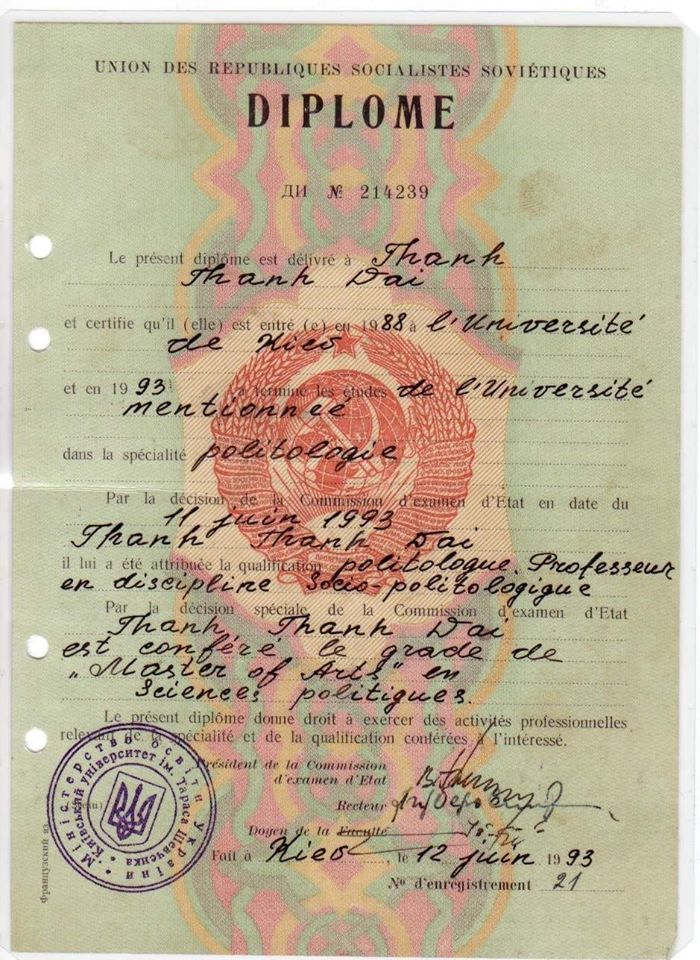 UNION DES REPUBLIQUES SOCIALISTES SOVIÉTIQUES
DIPLOME
ДИ № 214239
Le présent diplôme est délivré à Thanh
Thanh Dai
et certifie qu'il (elle) est entré (e) en 1988 à l'Université
de Kiev
et en 1993 a terminé les études de l'Université
mentionnée
dans la spécialité politologie
Par la décision de la Commission d'examen d'Etat en date du
11 juin 1993
Thanh Thanh Dai
il lui a été attribuée la qualification politologue. Professeur
en discipline Socio-politologique
Par la décision spéciale de la Commission d'examen d'Etat
Thanh Thanh Dai
est conféré le grade de
"Master of Arts" en
Sciences politiques.
Le présent diplôme donne droit à exercer des activités professionnelles
relevant de la spécialité et de la qualification conférées à l'intéressé.
Président de la Commission
d'examen d'Etat
Recteur
Doyen de la Faculté
Fait à Kiev, le 12 juin 1993
N° d'enregistrement 21
Міністерство освіти України
Київський університет ім. Тараса Шевченка
Французский яз.